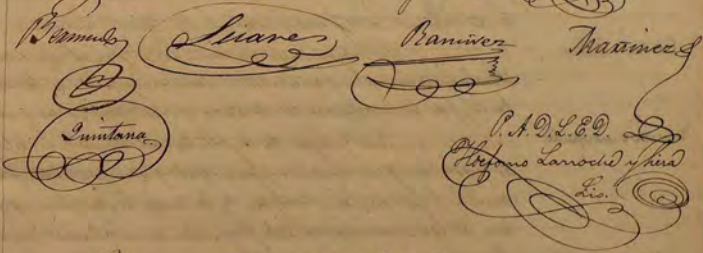 Bermudez Linares Ramirez Martinez
Quintana
P. A. D. L. E. D.
Ildefonso Larroche y
Lic.